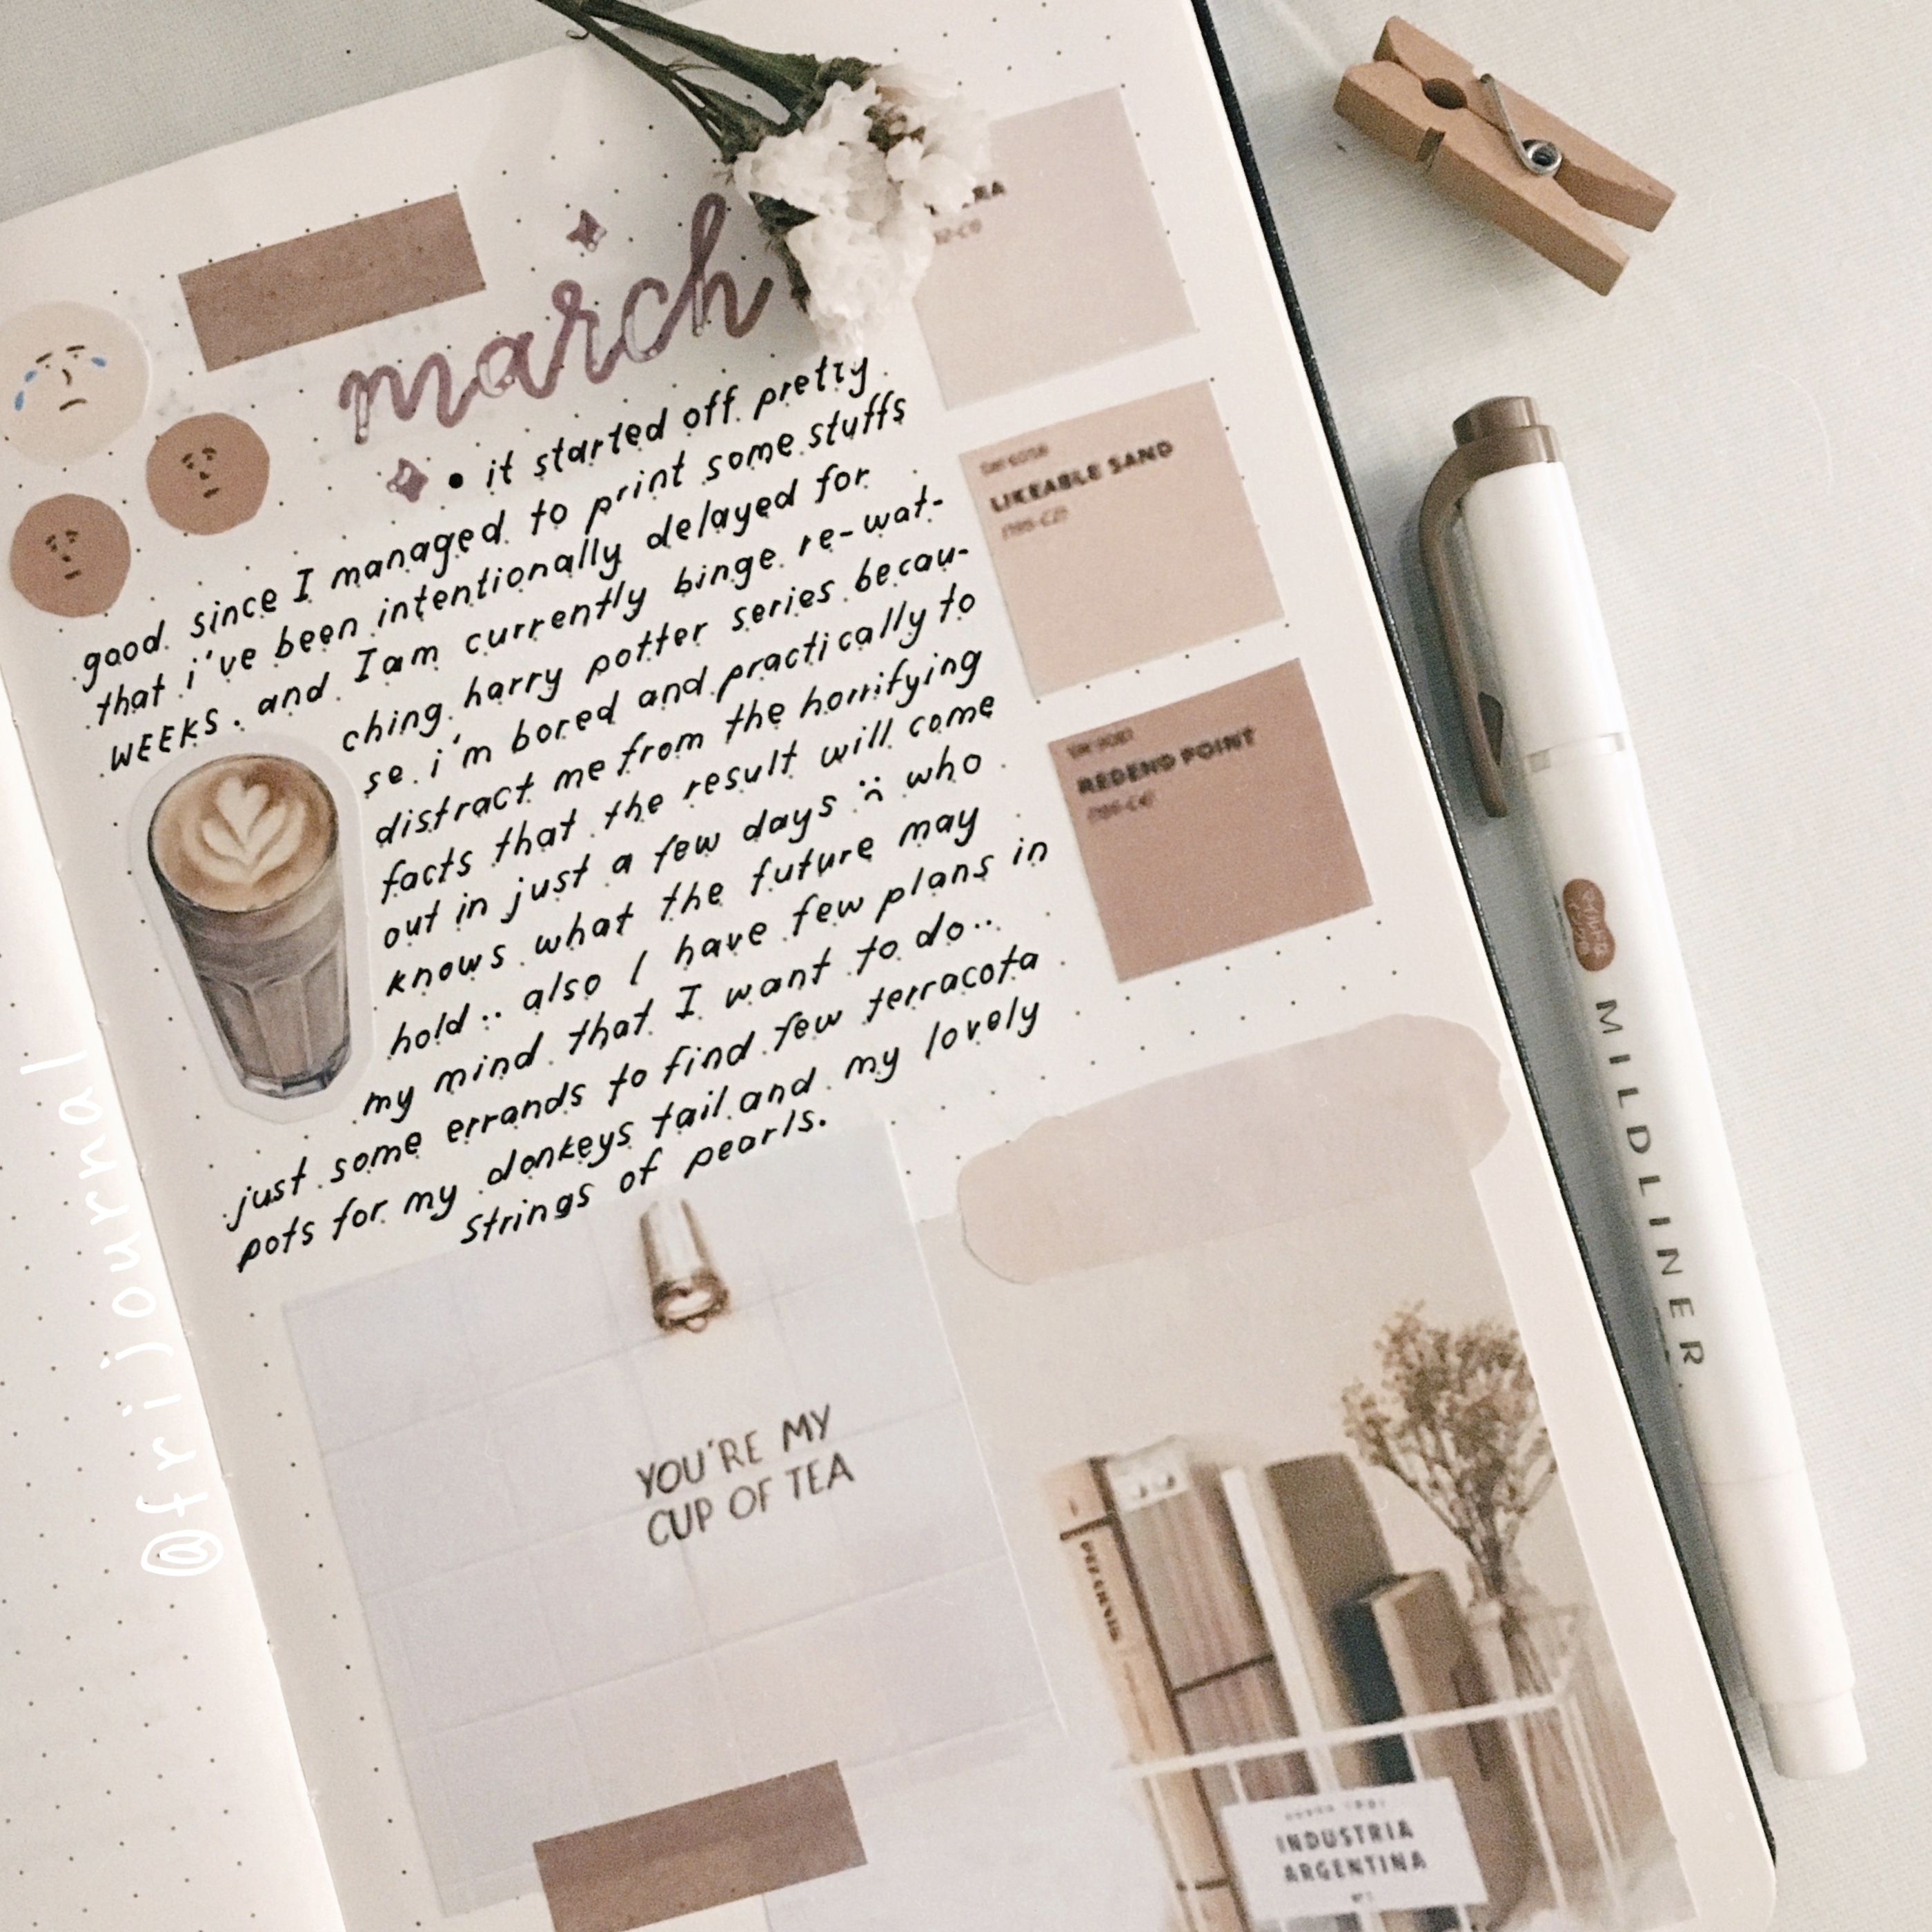 march
• it started off pretty
good since I managed to print some stuffs
that i've been intentionally delayed for
WEEKS. and I am currently binge re-wat-
ching harry potter series becau-
se i'm bored and practically to
distract me from the horrifying
facts that the result will come
out in just a few days :( who
knows what the future may
hold.. also I have few plans in
my mind that I want to do..
just some errands to find few terracota
pots for my donkeys tail and my lovely
strings of pearls.
LIKEABLE SAND
REDEND POINT
MILDLINER
YOU'RE MY
CUP OF TEA
INDUSTRIA
ARGENTINA
@frijournal